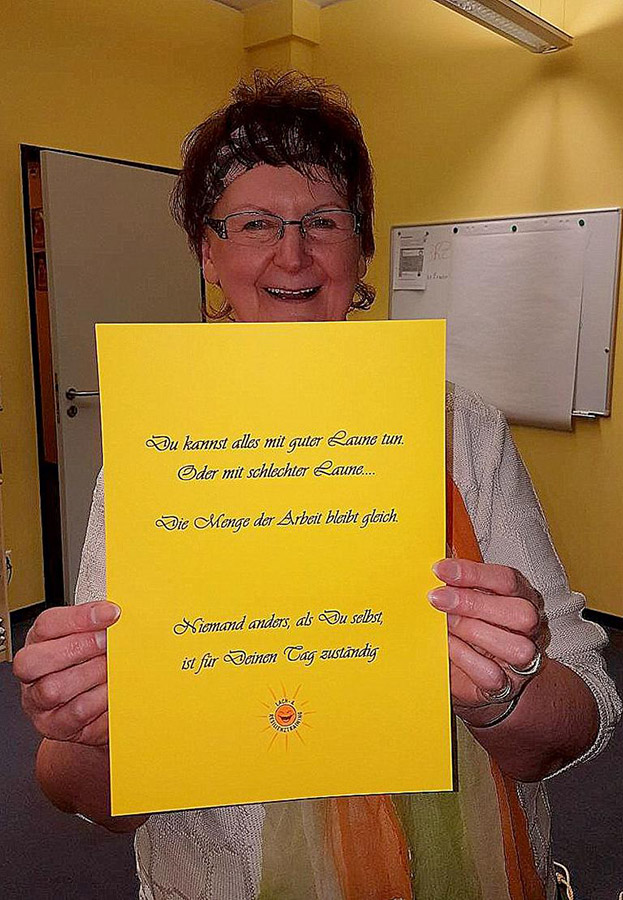 Du kannst alles mit guter Laune tun.
Oder mit schlechter Laune....
Die Menge der Arbeit bleibt gleich.
Niemand anders, als Du selbst,
ist für Deinen Tag zuständig
LACH- &
RESILIENZTRAINING